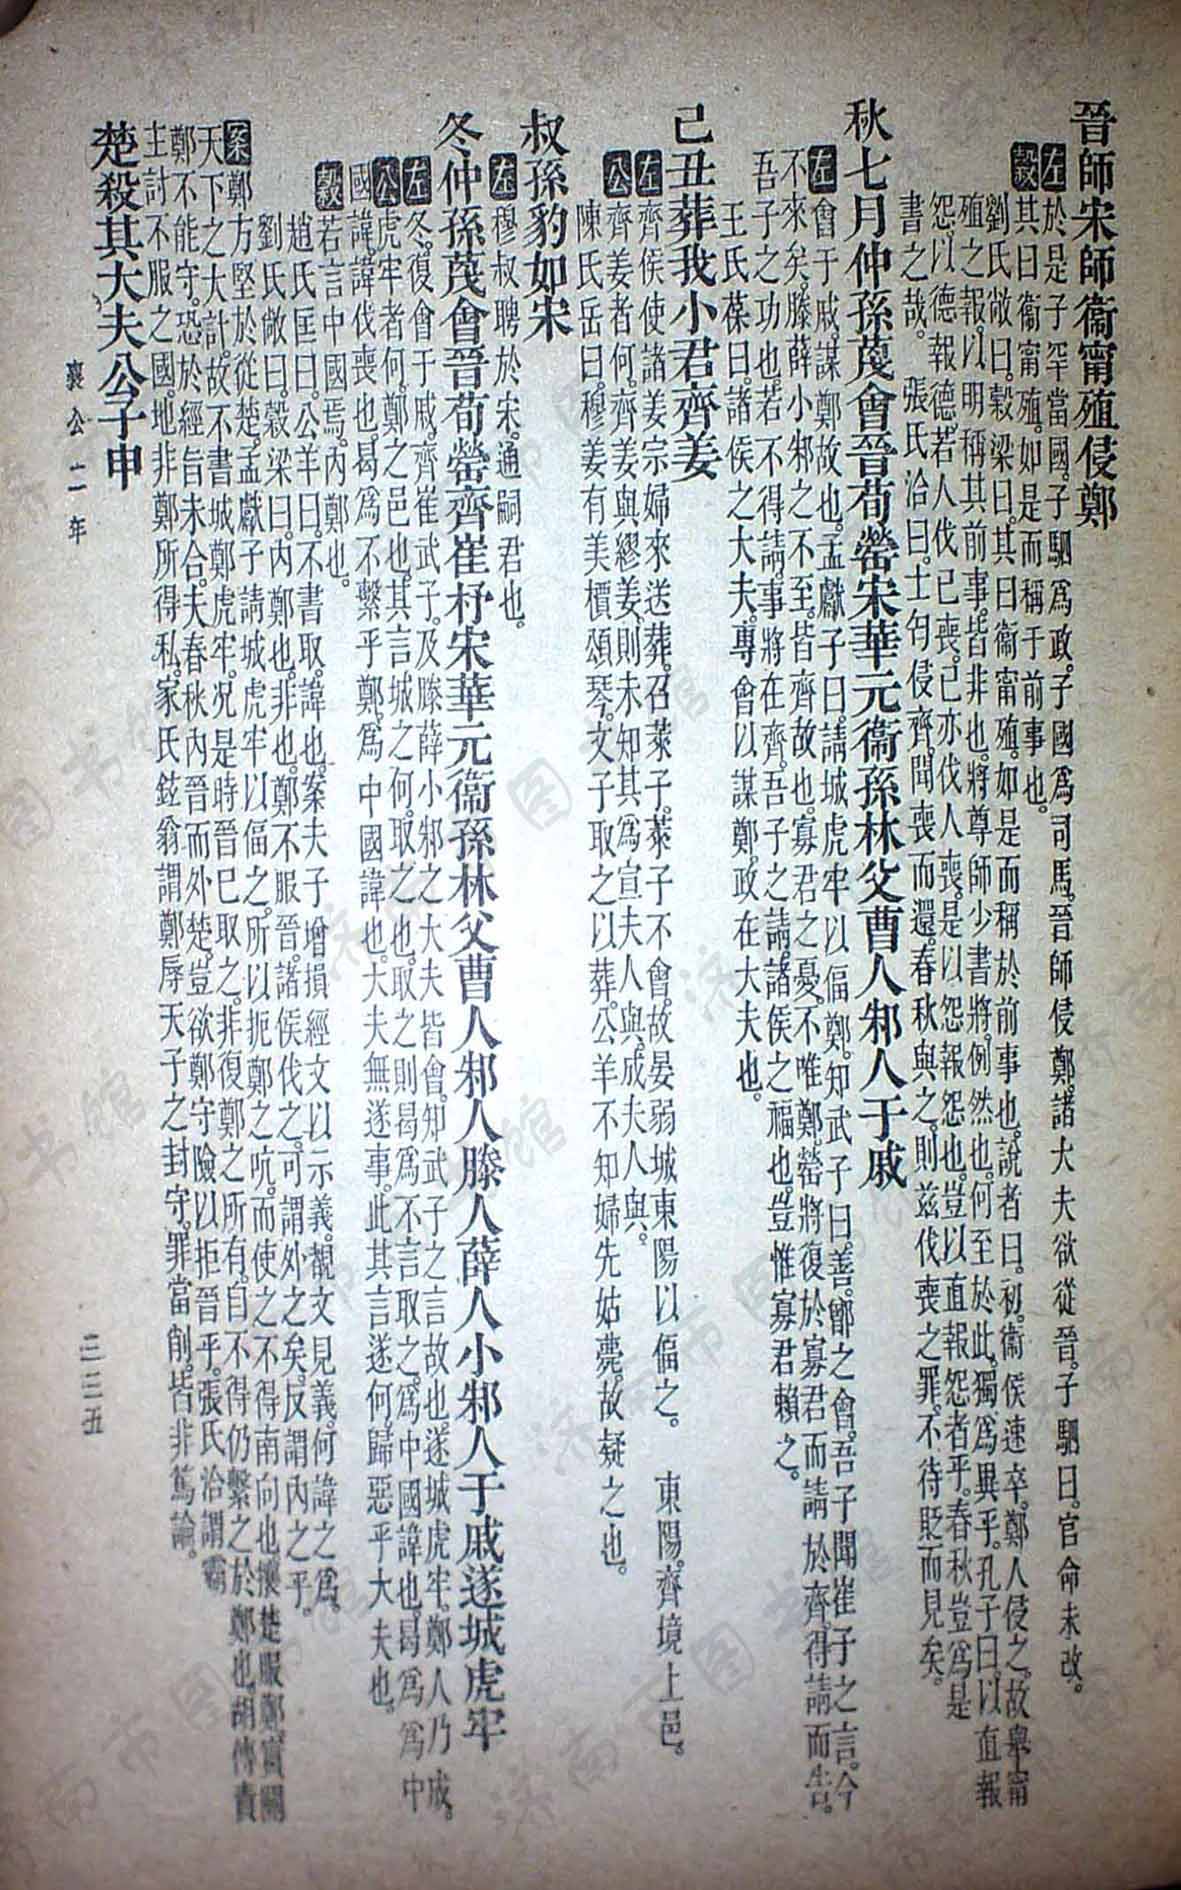 晉師宋師衞甯殖侵鄭
左於是子罕當國子駟爲政子國爲司馬晉師侵鄭諸大夫欲從晉子駟曰官命未改
穀其曰衞甯殖如是而稱于前事也
劉氏敞曰穀梁曰其曰衞甯殖如是而稱於前事也說者曰初衞侯速卒鄭人侵之故舉甯
殖之報以明稱其前事皆非也將尊師少書將例然也何至於此獨爲異乎孔子曰以直報
怨以德報德若人伐己喪己亦伐人喪是以怨報怨也豈以直報怨者乎春秋豈爲是
書之哉 張氏洽曰士匄侵齊聞喪而還春秋與之則兹伐喪之罪不待貶而見矣
秋七月仲孫蔑會晉荀罃宋華元衞孫林父曹人邾人于戚
左會于戚謀鄭故也孟獻子曰請城虎牢以偪鄭知武子曰善鄫之會吾子聞崔子之言今
不來矣滕薛小邾之不至皆齊故也寡君之憂不唯鄭罃將復於寡君而請於齊得請而告
吾子之功也若不得請事將在齊吾子之請諸侯之福也豈惟寡君賴之
王氏葆曰諸侯之大夫專會以謀鄭政在大夫也
己丑葬我小君齊姜
左齊侯使諸姜宗婦來送葬召萊子萊子不會故晏弱城東陽以偪之 東陽齊境上邑
公齊姜者何齊姜與繆姜則未知其爲宣夫人與成夫人與
陳氏岳曰穆姜有美檟頌琴文子取之以葬公羊不知婦先姑薨故疑之也
叔孫豹如宋
左穆叔聘於宋通嗣君也
冬仲孫蔑會晉荀罃齊崔杼宋華元衞孫林父曹人邾人滕人薛人小邾人于戚遂城虎牢
左冬復會于戚齊崔武子及滕薛小邾之大夫皆會知武子之言故也遂城虎牢鄭人乃成
公虎牢者何鄭之邑也其言城之何取之也取之則曷爲不言取之爲中國諱也曷爲爲中
國諱諱伐喪也曷爲不繫乎鄭爲中國諱也大夫無遂事此其言遂何歸惡乎大夫也
穀若言中國焉內鄭也
趙氏匡曰公羊曰不書取諱也案夫子增損經文以示義觀文見義何諱之爲
劉氏敞曰穀梁曰內鄭也非也鄭不服晉諸侯伐之可謂外之矣反謂內之乎
案鄭方堅於從楚孟獻子請城虎牢以偪之所以扼鄭之吭而使之不得南向也攘楚服鄭實關
天下之大計故不書城鄭虎牢況是時晉已取之非復鄭之所有自不得仍繫之於鄭也胡傳責
鄭不能守恐於經旨未合大春秋內晉而外楚豈欲鄭守險以拒晉乎張氏洽謂霸
主討不服之國地非鄭所得私家氏鉉翁謂鄭辱天子之封守罪當削皆非篤論
楚殺其大夫公子申
襄公二年
三三五